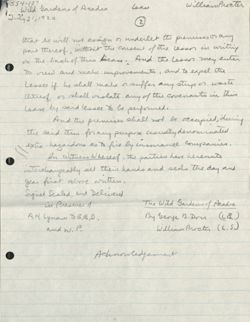 Wild Gardens of Acadia Lease William Procter
July 21, 1920
(2)
that he will not assign or underlet the premises or any
part thereof, without the consent of the lessor in writing
on the back of this lease. And the lessor may enter
to view and make improvements, and to expel the
lessee if he shall make or suffer any strip or waste
thereof, or shall violate any of the covenants in this
lease by said lessee to be performed.
And the premises shall not be occupied, during
the said term for any purpose usually denominated
extra-hazardous as to fire by insurance companies.
In witness Whereof, the parties have hereunto
interchangeably set their hands and seals the day and
year first above written.
Signed Sealed and Delivered
in Presence of The Wild Gardens of Acadia
A.H. Lynam By George B. Dorr (L.S.)
and W.P. William Procter (L.S.)
Acknowledgement